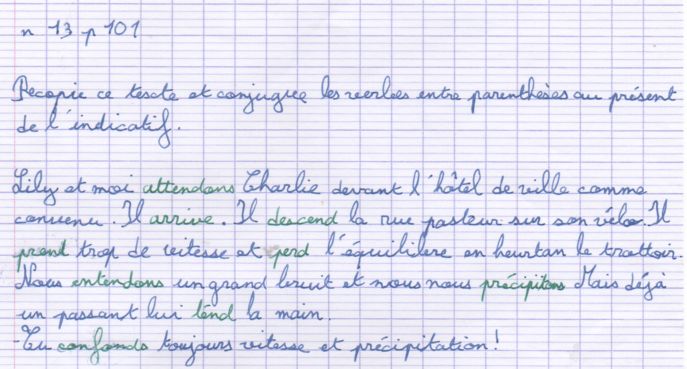 n 13 p 101
Recopie ce texte et conjuguee les verbes entre parenthèses au présent
de l'indicatif.
Lily et moi attendons Charlie devant l'hôtel de ville comme
convenu. Il arrive. Il descend la rue pasteur sur son vélo. Il
prent trop de vitesse et perd l'équilibre en heurtan le trottoir.
Nous entendons un grand bruit et nous nous précipitons Mais déjà
un passant lui tend la main.
-Tu confonds toujours vitesse et précipitation!